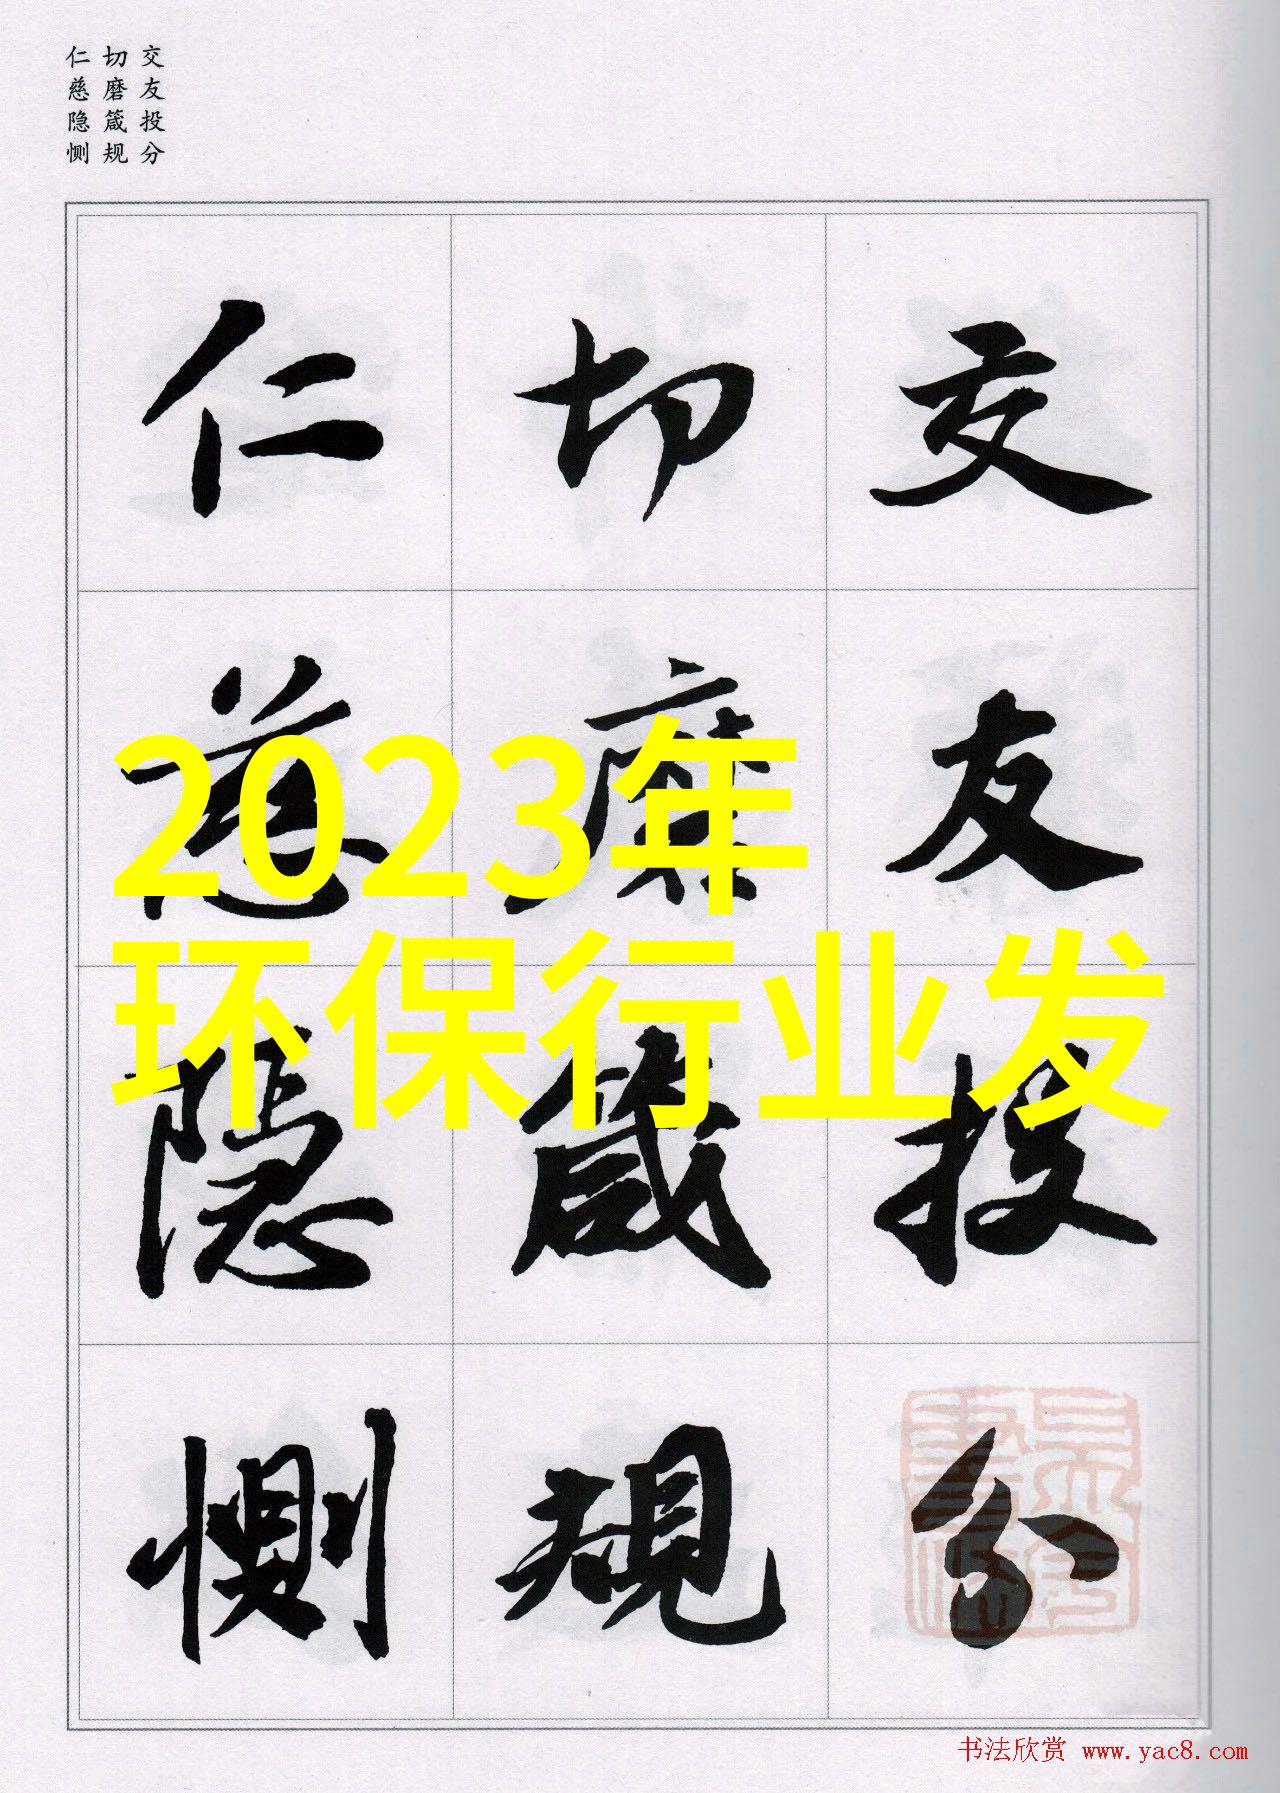 交友投分
切磨箴规
仁慈隐恻
交友投分
切磨箴規
仁慈隱惻
2023年
环保行业发
书法欣赏 www.yac8.com